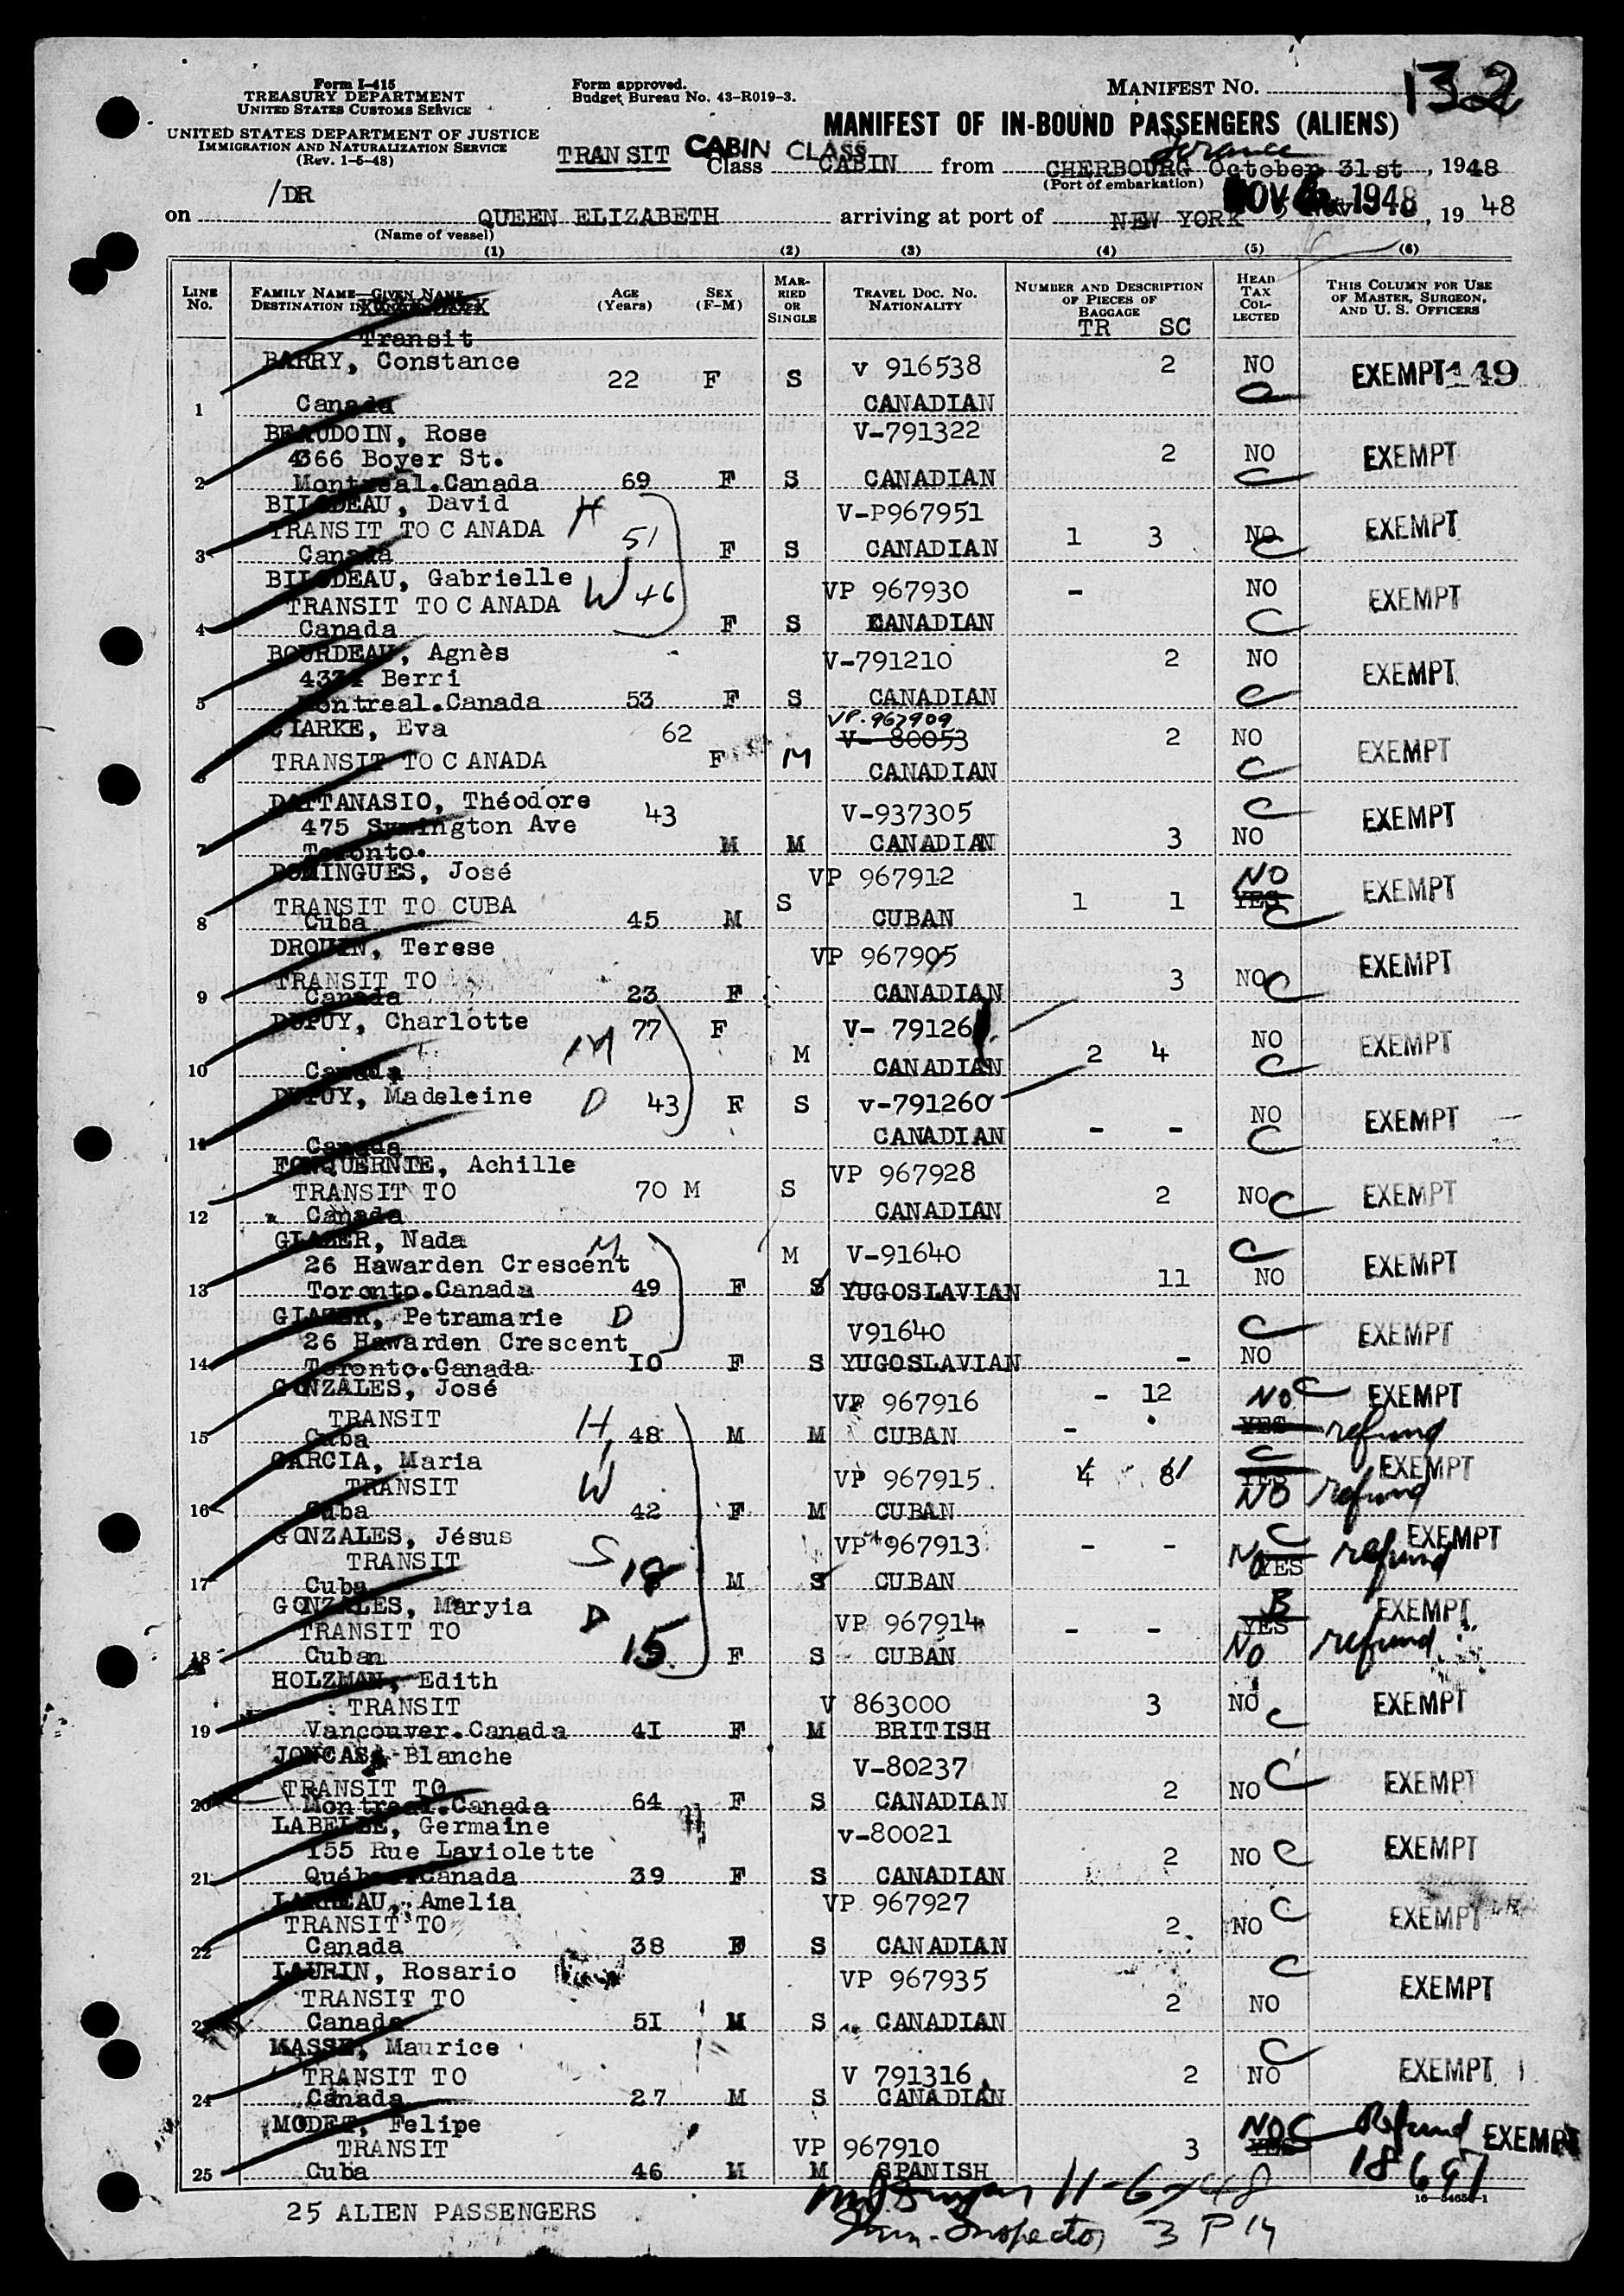 Form I-415
TREASURY DEPARTMENT
UNITED STATES CUSTOMS SERVICE
UNITED STATES DEPARTMENT OF JUSTICE
IMMIGRATION AND NATURALIZATION SERVICE
(Rev. 1-5-48)
Form approved.
Budget Bureau No. 43-R019-3.
MANIFEST NO. 132
MANIFEST OF IN-BOUND PASSENGERS (ALIENS)
TRANSIT CABIN CLASS
Class CABIN from CHERBOURG October 31st, 1948
(Port of embarkation)
/DR
on QUEEN ELIZABETH arriving at port of NEW YORK NOV 1948, 19 48
(Name of vessel)
(1) (2) (3) (4) (5) (6)
LINE No. FAMILY NAME—GIVEN NAME DESTINATION IN Transit AGE (Years) SEX (F-M) MARRIED OR SINGLE TRAVEL DOC. NO. NATIONALITY NUMBER AND DESCRIPTION OF PIECES OF BAGGAGE TR SC HEAD TAX COLLECTED THIS COLUMN FOR USE OF MASTER, SURGEON, AND U. S. OFFICERS
BARRY, Constance 22 F S V 916538 2 NO EXEMPT 149
1 Canada CANADIAN
BEAUDOIN, Rose V-791322
4366 Boyer St. 2 NO EXEMPT
2 Montreal.Canada 69 F S CANADIAN C
BILODEAU, David H V-P967951
TRANSIT TO CANADA 51 1 3 NO EXEMPT
3 Canada F S CANADIAN C
BILODEAU, Gabrielle W 46 VP 967930 - NO EXEMPT
TRANSIT TO CANADA
4 Canada F S CANADIAN C
BOURDEAU, Agnès V-791210 2 NO EXEMPT
4334 Berri
5 Montreal.Canada 53 F S CANADIAN C
CLARKE, Eva 62 VP.967909 V- 80053 2 NO EXEMPT
6 TRANSIT TO CANADA F M CANADIAN C
DATTANASIO, Théodore 43 V-937305 C EXEMPT
475 Symington Ave
7 Toronto. M M CANADIAN 3 NO
DOMINGUES, José VP 967912 NO EXEMPT
TRANSIT TO CUBA S 1 1 YES
8 Cuba 45 M CUBAN C
DROUIN, Terese VP 967905 EXEMPT
TRANSIT TO 3 NO C
9 Canada 23 F CANADIAN
DUPUY, Charlotte 77 F V- 79126 NO EXEMPT
M M 2 4 C
10 Canada CANADIAN
DUPUY, Madeleine D 43 F S V-791260 NO EXEMPT
11 Canada CANADIAN - - C
FONQUERNIE, Achille VP 967928
TRANSIT TO 70 M S 2 NO C EXEMPT
12 Canada CANADIAN
GLAZER, Nada M M V-91640 C EXEMPT
26 Hawarden Crescent 11 NO
13 Toronto.Canada 49 F S YUGOSLAVIAN
GLAZER, Petramarie D V91640 C EXEMPT
26 Hawarden Crescent NO
14 Toronto.Canada 10 F S YUGOSLAVIAN -
GONZALES, José VP 967916 - 12 NO C EXEMPT
TRANSIT H YES refund
15 Cuba 48 M M CUBAN -
GARCIA, Maria VP 967915 4 8 C EXEMPT
TRANSIT W YES
16 Cuba 42 F M CUBAN NO refund
GONZALES, Jésus VP 967913 - - C EXEMPT
TRANSIT S 18 NO YES refund
17 Cuba M S CUBAN
GONZALES, Maryia D VP 967914 - - B EXEMPT
TRANSIT TO 15 YES
18 Cuban F S CUBAN NO refund
HOLZMAN, Edith
TRANSIT V 863000 3 NO C EXEMPT
19 Vancouver.Canada 41 F M BRITISH
JONCAS, Blanche V-80237 C EXEMPT
TRANSIT TO 2 NO
20 Montreal.Canada 64 F S CANADIAN
LABELLE, Germaine V-80021
155 Rue Laviolette 2 NO C EXEMPT
21 Québec.Canada 39 F S CANADIAN
Amelia VP 967927 C
TRANSIT TO 2 NO EXEMPT
22 Canada 38 F S CANADIAN
LAURIN, Rosario VP 967935 C EXEMPT
TRANSIT TO 2 NO
23 Canada 51 M S CANADIAN
MASSE, Maurice C
TRANSIT TO V 791316 2 NO EXEMPT
24 Canada 27 M S CANADIAN
MODET, Felipe NO C Refund EXEMPT
TRANSIT VP 967910 3 YES 18697
25 Cuba 46 M M SPANISH
25 ALIEN PASSENGERS
11-6-48
Imm. Inspector